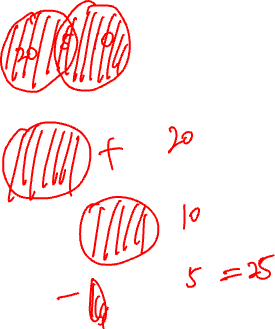 20 5 10
+ 20
10
- 5 = 25